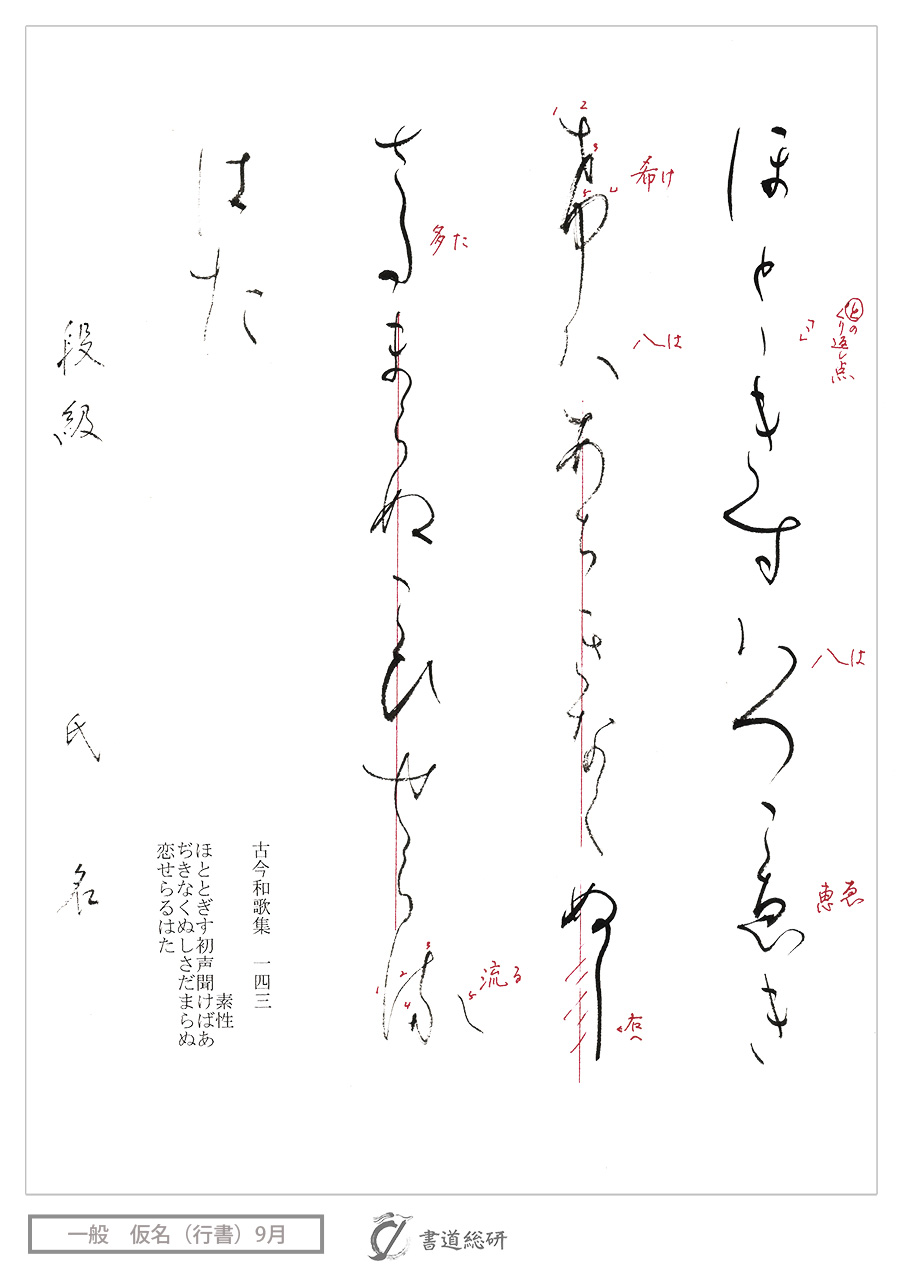 ほとゝきす八つこ恵き
とのくり返し点
八は
恵ゑ
希八あちきなくぬし
希け
八は
右へ
さ多まらぬこひせら流
多た
流る
はた
段級 氏名
古今和歌集 一四三
素性
ほととぎす初声聞けばあ
ぢきなくぬしさだまらぬ
恋せらるはた
一般 仮名（行書）9月
書道総研